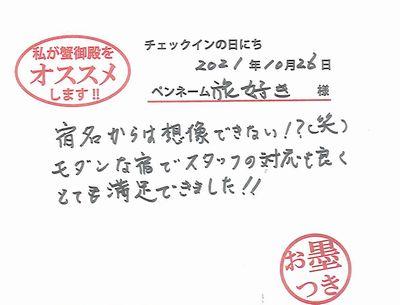 私が蟹御殿を
オススメ
します!!
チェックインの日にち
2021年10月26日
ペンネーム 旅好き 様
宿名からは想像できない!?(笑)
モダンな宿でスタッフの対応も良く
とても満足できました!!
お墨
つき